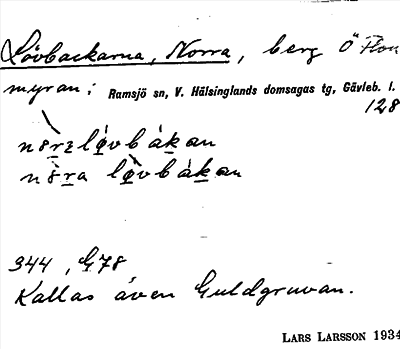 Lövbackarna, Norra, berg Ö Flon
myran; Ramsjö sn, V. Hälsinglands domsagas tg, Gävleb. l.
128
344, G78
Kallas även Guldgruvan.
LARS LARSSON 1934